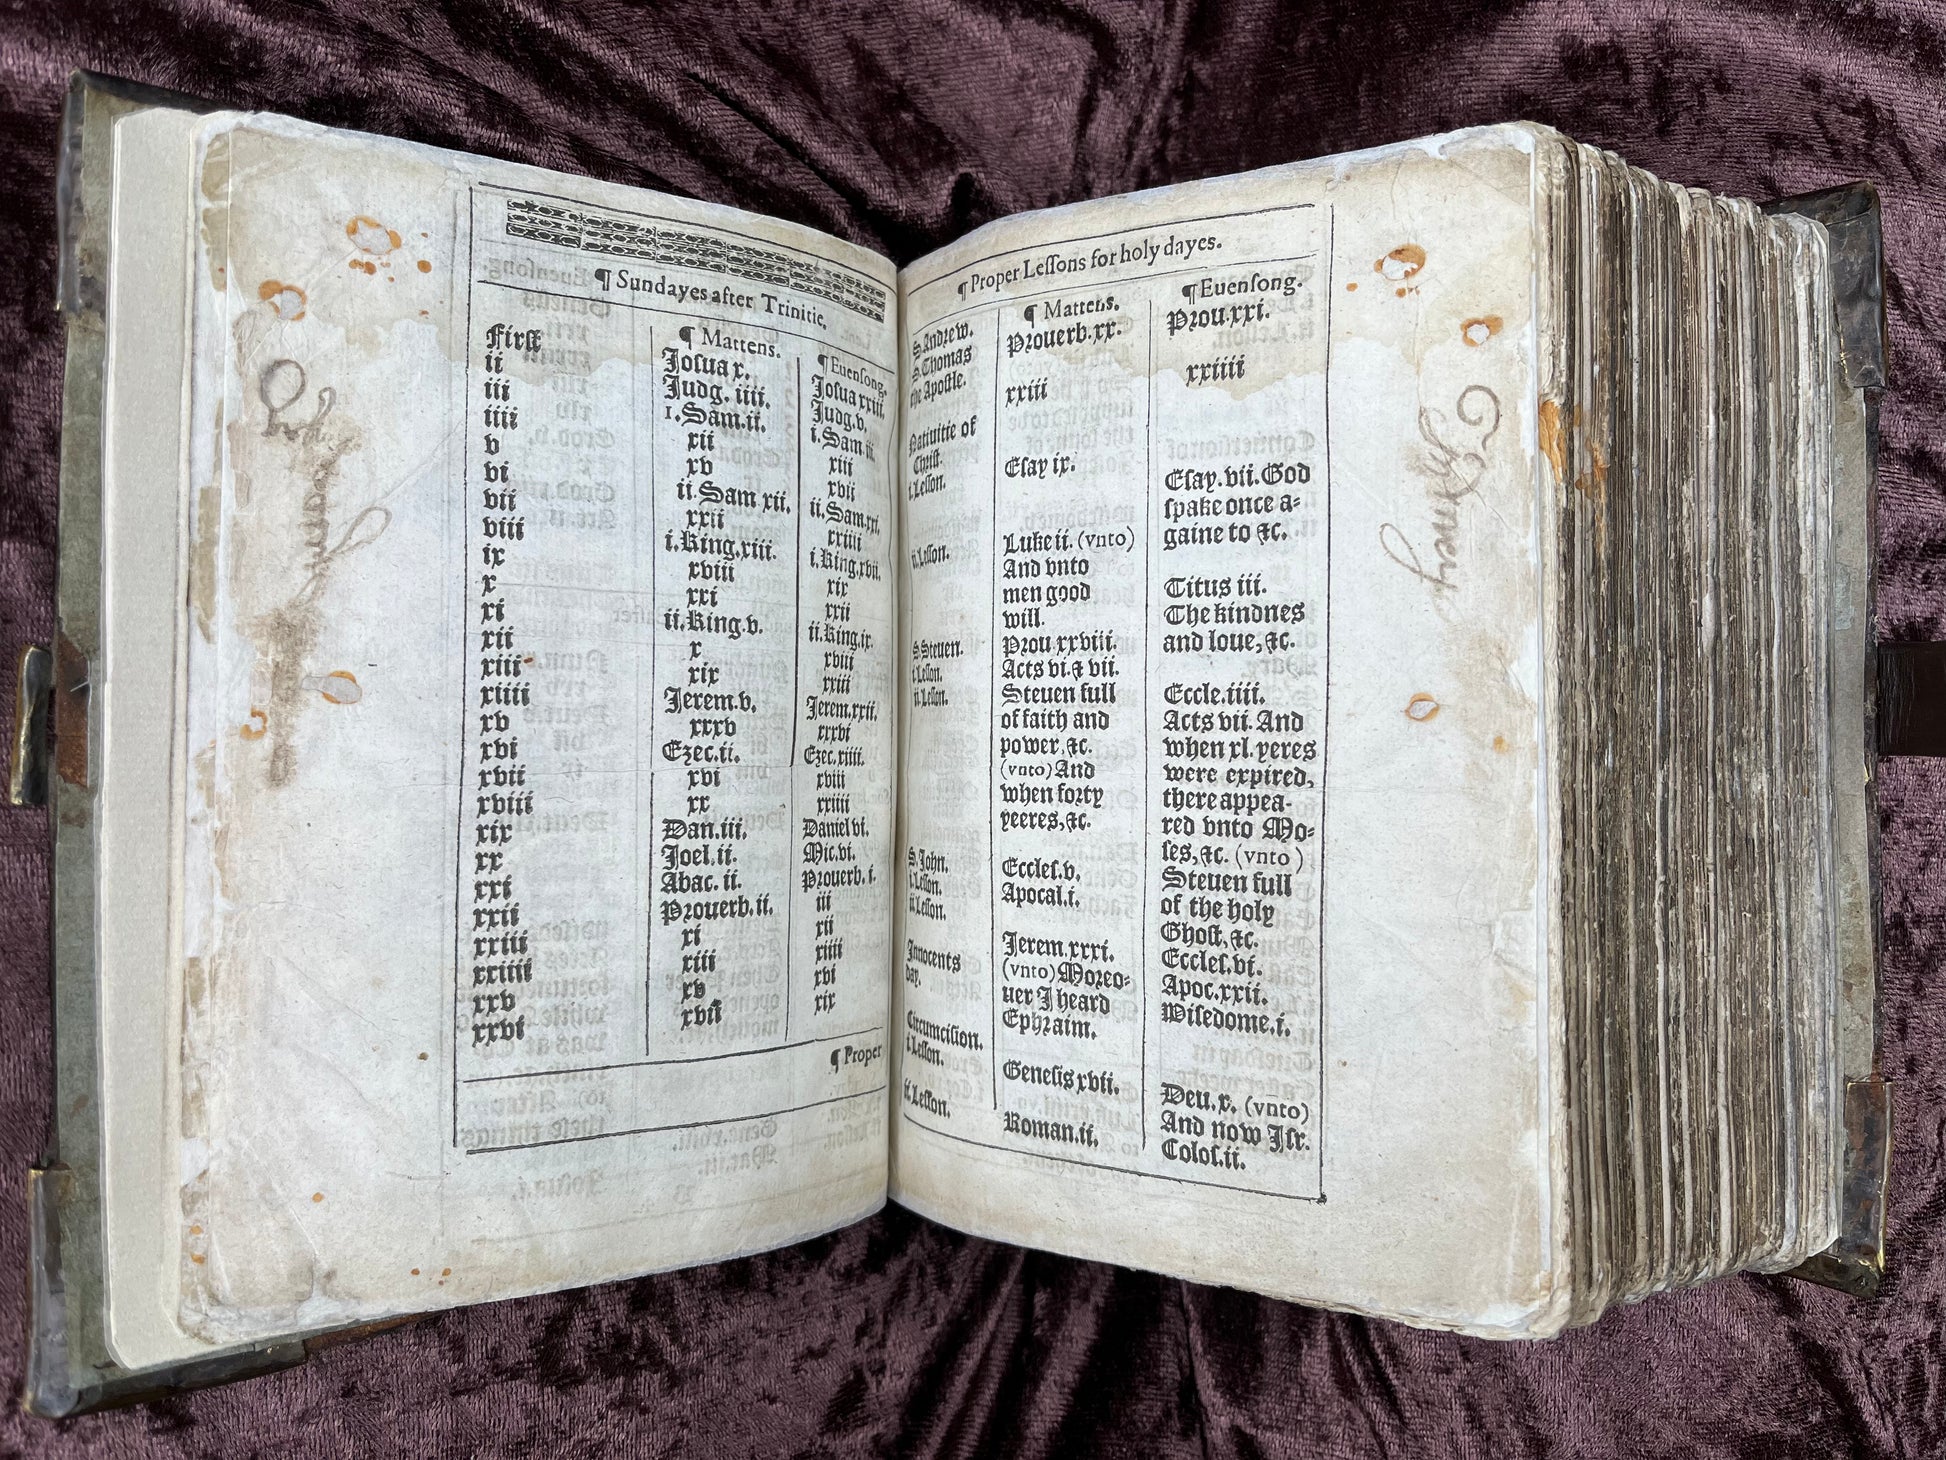 ¶ Sundayes after Trinitie.
¶ Mattens. ¶ Euensong.
First Josua x. Josua xxiii.
ii Judg. iiii. Judg. v.
iii 1. Sam. ii. i. Sam. iii.
iiii xii xiii
v xv xvii
vi ii. Sam. xii. ii. Sam. xxi.
vii xxii xxiiii
viii i. King. xiii. i. King. xvii.
ix xviii xix
x xxi xxii
xi ii. King. v. ii. King. ix.
xii x xviii
xiii xix xxiii
xiiii Jerem. v. Jerem. xxii.
xv xxxv xxxvi
xvi Ezec. ii. Ezec. xiiii.
xvii xvi xviii
xviii xx xxiiii
xix Dan. iii. Daniel vi.
xx Joel. ii. Mic. vi.
xxi Abac. ii. Prouerb. i.
xxii Prouerb. ii. iii
xxiii xi xii
xxiiii xiii xiiii
xxv xv xvi
xxvi xvii xix
¶ Proper
¶ Proper Lessons for holy dayes.
¶ Mattens. ¶ Euensong.
S. Andrew. Prouerb. xx. Prou. xxi.
S. Thomas
the Apostle. xxiii xxiiii
Natiuitie of
Christ.
i. Lesson. Esay ix. Esay. vii. God
spake once a-
gaine to &c.
ii. Lesson. Luke ii. (vnto) Titus iii.
And vnto The kindnes
men good and loue, &c.
will.
S. Steuen. Prou xxviii. Eccle. iiii.
i. Lesson. Acts vi. & vii. Acts vii. And
ii. Lesson. Steuen full when xl. yeres
of faith and were expired,
power, &c. there appea-
(vnto) And red vnto Mo-
when forty ses, &c. (vnto)
yeeres, &c. Steuen full
of the holy
Ghost, &c.
S. John.
i. Lesson. Eccles. v. Eccles. vi.
ii. Lesson. Apocal. i. Apoc. xxii.
Innocents Jerem. xxxi. Wisedome. i.
day. (vnto) Moreo-
uer I heard
Ephraim.
Circumcision.
i. Lesson. Genesis xvii. Deu. x. (vnto)
And now Isr.
ii. Lesson. Roman. ii. Colos. ii.